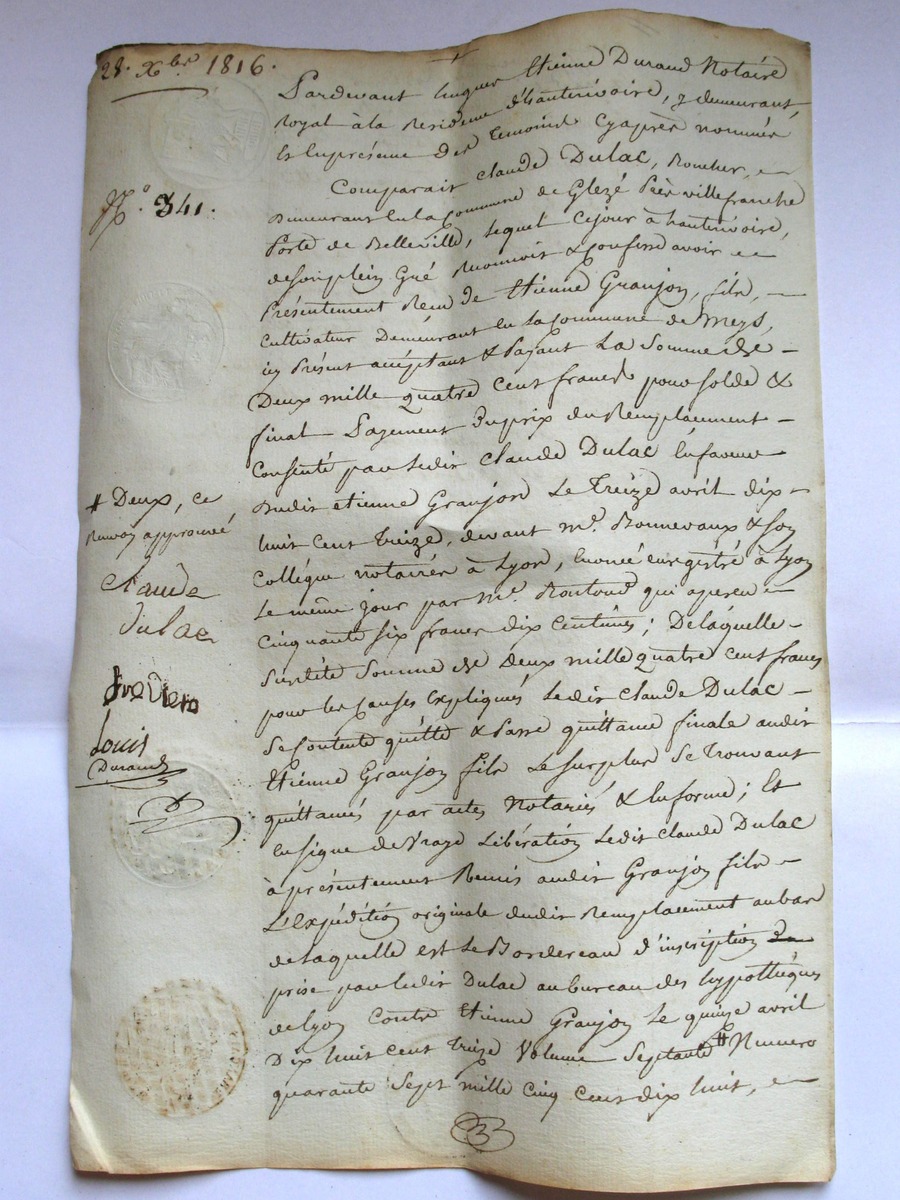 28. Xbre. 1816.
Pardevant Etienne Durand Notaire
Royal à la Residence d'hauterivoire, y demeurant
Et En présence des temoins Cyaprès nommés
N.o 341.
Comparait Claude Dulac, Rocher,
Demeurant En la Commune de Glezé Près villefranche
Porte de Belleville, lequel Cejour à hauterivoire,
de Son plein Gré Reconnoit & Confesse avoir
Présentement Reçu de Etienne Granjon, fils,
Cultivateur Demeurant En la Commune de Meys,
icy Présent acceptant & Payant La Somme de
Deux mille quatre Cent francs pour Solde &
final Payement Du prix du Remplacement
Consenti par Ledit Claude Dulac En faveur
Dudit étienne Granjon Le treize avril dix
huit Cent treize, devant Me. Bonnevaux & Son
Collègue notaires à Lyon, Enoncé enregistré à Lyon
Le même jour par Mr. qui a perçu
Cinquante Six francs dix Centimes; De laquelle
Susdite Somme de Deux mille quatre Cent francs
pour les Causes Expliquées Ledit Claude Dulac
Se Contente quitte & Passe quittance finale audit
Etienne Granjon fils Le Surplus Se trouvant
quittancés par actes Notariés & En forme; Et
En Signe de Vraye Libération Ledit Claude Dulac
à présentement Remis audit Granjon fils
L'Expédition originale dudit Remplacement au bas
de laquelle est Le Bordereau d'inscription
prise par Ledit Dulac au bureau des hypothèques
de Lyon Contre Etienne Granjon Le quinze avril
Dix huit Cent treize Volume Septante # Numero
quarante Sept mille Cinq Cent dix huit,
# Deux, ce
Renvoy approuvé
Claude
Dulac
Louis
Durand